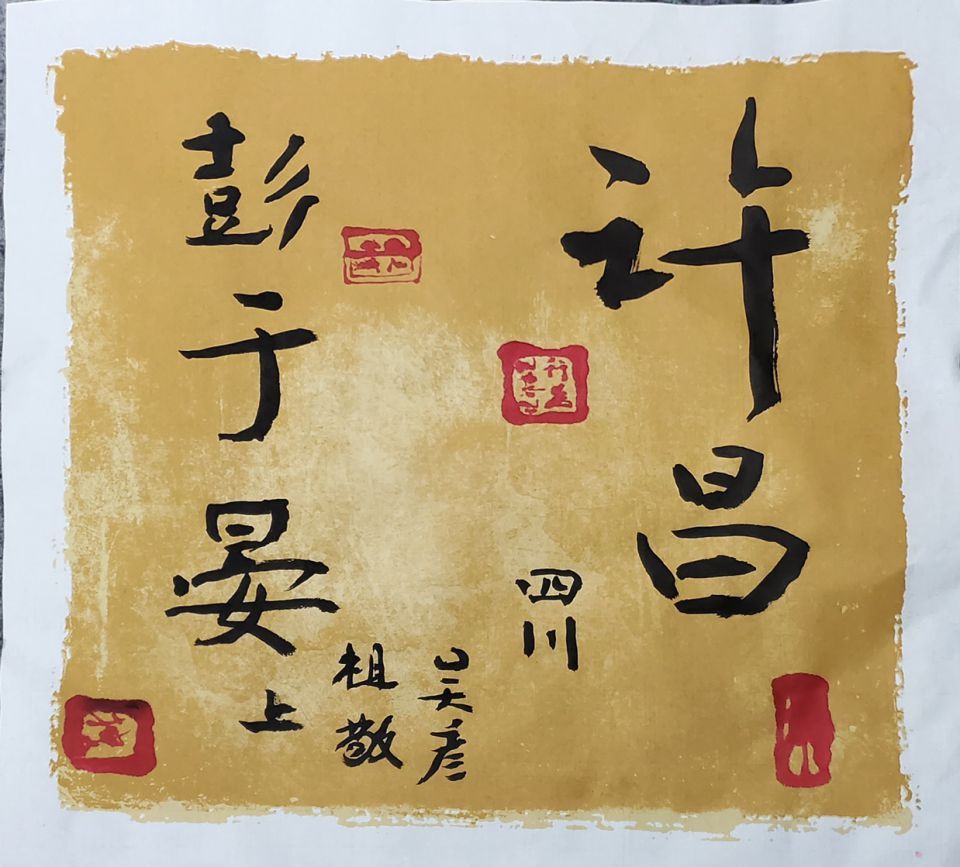 许昌
四川
吴彦
祖敬
上
彭于晏